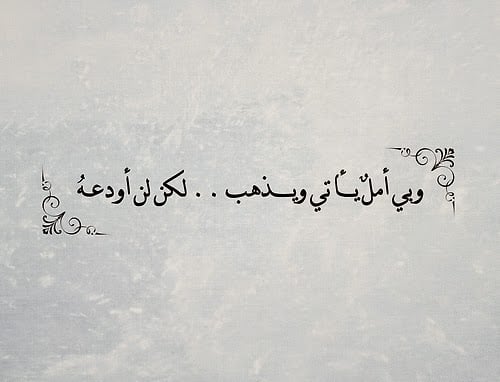 وبي أملٌ يـأتي ويـذهب . . لكن لن أودعـهُ